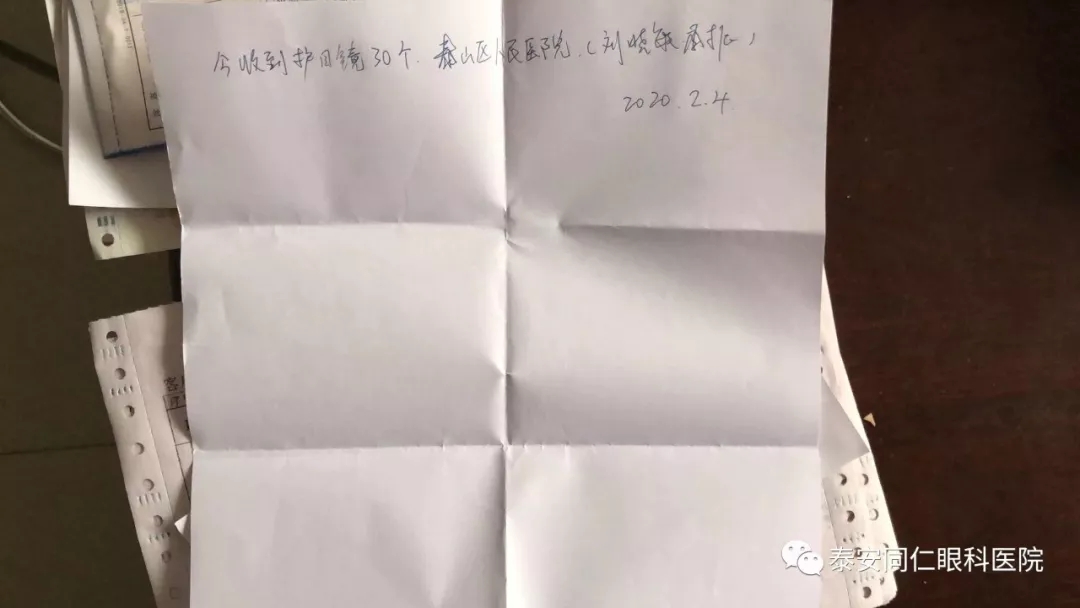 今收到护目镜30个. 泰山区人民医院.(刘晓
2020.2.4.
泰安同仁眼科医院